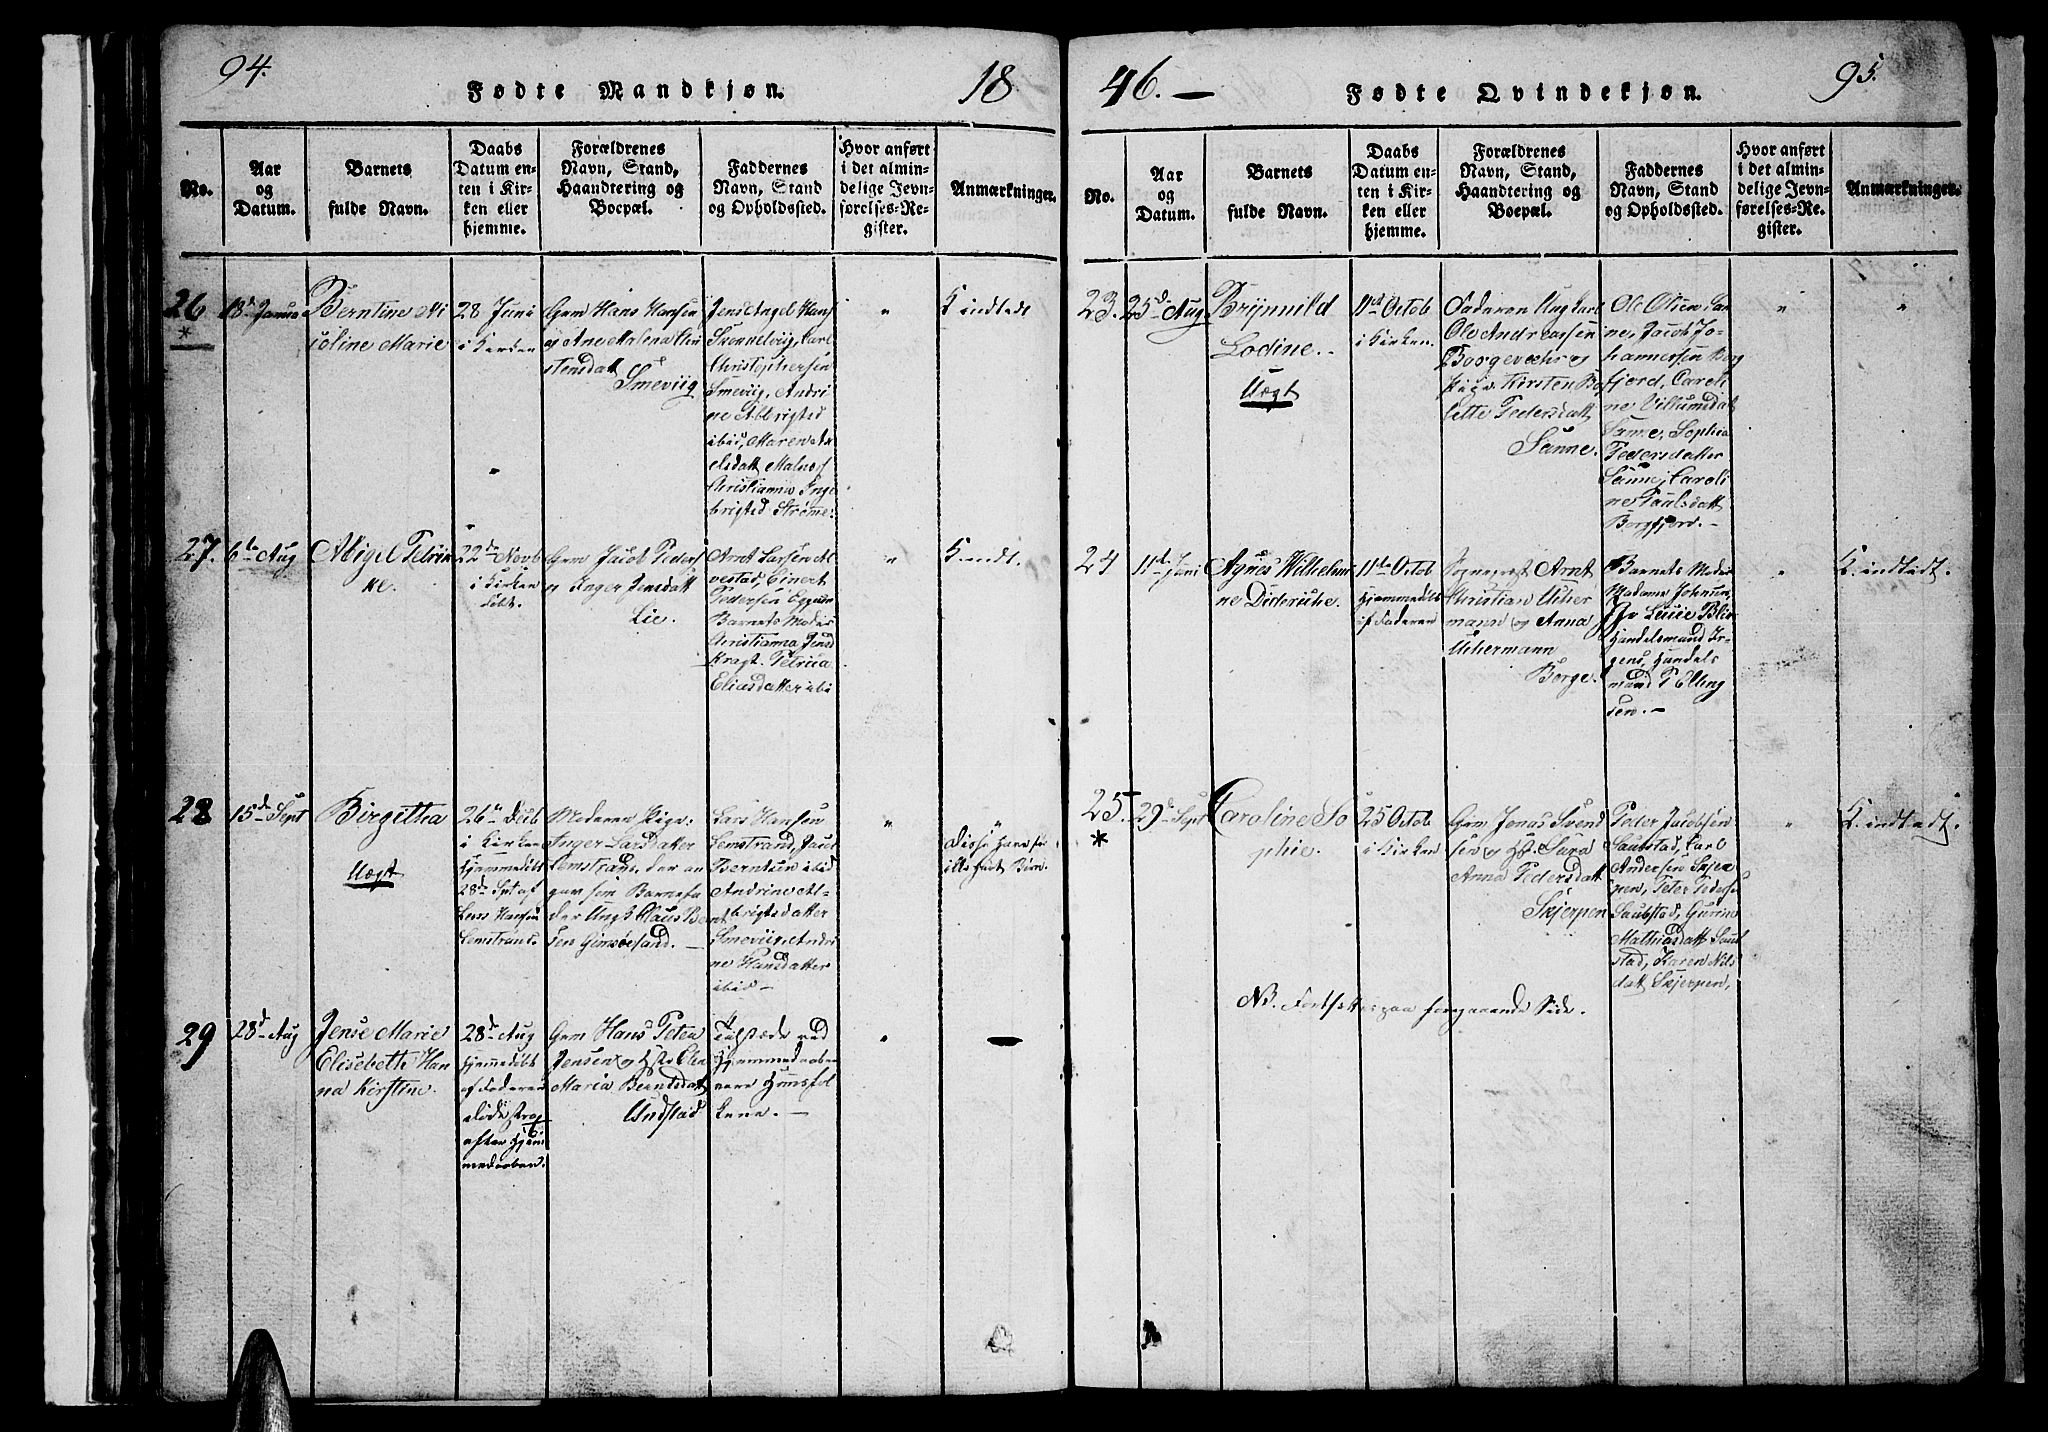 94.
Fødte Mandkjøn.
18
No.
Aar
og
Datum.
Barnets
fulde Navn.
Daabs
Datum en-
ten i Kir-
ken eller
hjemme.
Forældrenes
Navn, Stand,
Haandtering og
Boepæl.
Faddernes
Navn, Stand
og Opholdssted.
Hvor anført
i det almin-
delige Jevn-
førelses-Re-
gister.
Anmærkninger.
26
*
18de Janua
Berntine Ni
coline Marie
28 Juni
i Kirken
Gm Hans Hansen
og Ane Malena Chri
stensdat
Smeviig
Jens Angel Hans
Carl
Christophersen
Smeviig, Andri
ne Albrigtsd
ibid, Maren
elsdatt Malnes
Christianne Inge
brigtsd Strømme.
"
K indtedt
27.
6te Aug
Abigel Petrin
ne.
22de Novb
i Kirken
døbt.
Gm Jacob Peders
og Inger Jensdatt
Lie.
Arnt Larsen Al
vestad, Einert
Pedersen Eggum
Barnets Moder
Christianna Jensd
Kragt. Petrica
Eliasdatter ibi
"
K. indt.
28
15de Sept
Birgitha
Uægt
26de Decb
i Kirken
Hjemmedøbt
28de Spt af
Lars Hansen
Lemstrand.
Moderen Pige:
Inger Larsdatter
Lemstrand, der an
gav som Barnefa
der Ungk Claus Bernt
sen Gimsøesand. —
Lars Hansen
Lemstrand, Jacob
Berntsen ibid
Andrine Al-
brigtsdatter
Smeviig, Andri
ne Hansdatter
ibid —
"
"
Disse have for
ill: havt Børn.
29
28de Aug
Jense Marie
Elisebeth Han
na Kirstine.
28de Aug
hjemmedøbt
af Faderen
døde strax
efter Hjem
medaaben.
Gm Hans Peter
Jensen og Hst Elen
Maria Berntsdatt
Undstad
Tilstæde ved
Hjemmedaaben
vare Huusfol
kene. —
"
—
46. —
Fødte Qvindekjøn.
95.
No.
Aar
og
Datum.
Barnets
fulde Navn.
Daabs
Datum en-
ten i Kir-
ken eller
hjemme.
Forældrenes
Navn, Stand,
Haandtering og
Boepæl.
Faddernes
Navn, Stand
og Opholdssted.
Hvor anført
i det almin-
delige Jevn-
førelses-Re-
gister.
Anmærkninger.
23.
25de Aug
Brynnild
Lodine.
Uægt
11te Octob
i Kirken.
Faderen Ungkarl
Ole Andreassen
Borgevær og
Pige Kirsten Bo
lette Pedersdatt
Sanne.
Ole Olsen San
ne, Jacob Jo-
hannessen Borg
fjord, Caroli
ne Villumsdat
Sanne, Sophia
Pedersdatter
Sanne, Caroli
ne Paulsdatt
Borgfjord. —
"
"
24
11te Juni
Agnes Wilhelmi
ne Dideriche.
11te Octob
hjemmedøbt
af Faderen
Sognepræst Arnt
Christian Ucher
mann og Anna
Uchermann
Borge.
Barnets Moder
Madame Johnsen,
Jfr Lucie Blix
Handelsmand Jr
gens, Handels
mand P Elling
sen. —
"
K. indtedt.
25.
*
29de Sept
Caroline So
phie.
25 Octob
i Kirken
Gm Jonas Svend
sen og Hst. Sara
Anna Pedersdatt
Skjerpen
Peder Jacobsen
Saubstad, Carl
Andersen Skjer
pen, Peter Peders
Saubstad, Gurine
Mathiasdatt Saub
stad, Karen Nils
dat Skjerpen,
"
K. indtedt.
NB. Fortsættes paa foregaaende Side.